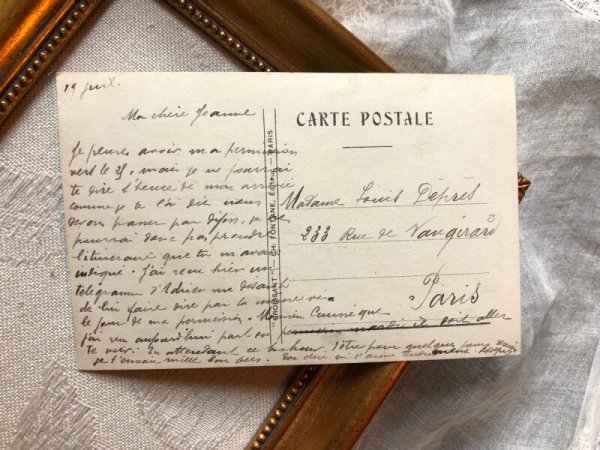 19 juil.
Ma chère Jeanne
Je pense avoir ma permission
vers le 25, mais je ne pourrai
te dire l'heure de mon arrivée
comme je te l'ai dit nous
devons passer par Dijon, je ne
pourrai donc pas prendre
l'itinéraire que tu m'avais
indiqué. J'ai reçu hier un
télégramme d'Adrien me disant
de lui faire dire par la
le jour de ma permission.
j'ai vu aujourd'hui il doit aller
te voir. En attendant ce bonheur d'être pour quelque temps
je t'envoie mille bons bisés. Ton
CARTE POSTALE
"CROISSANT" — CH. FONTANE, ÉDIT. — PARIS
Madame Louis Déprés
233 Rue de Vaugirard
Paris